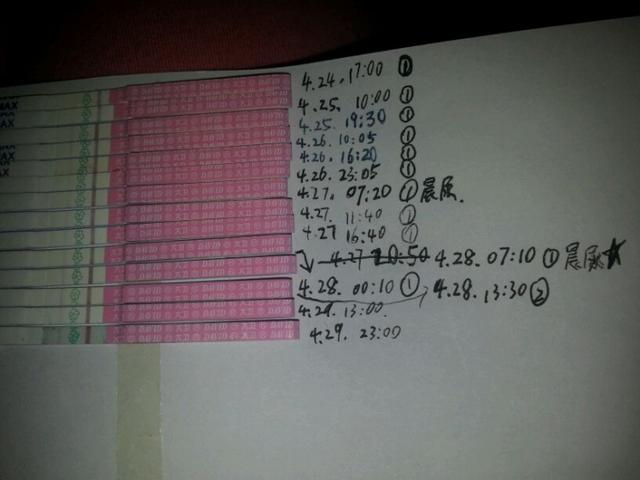 4.24, 17:00 ①
4.25, 10:00 ①
4.25. 19:30 ①
4.26. 10:05 ①
4.26. 16:20 ①
4.26. 23:05 ①
4.27. 07:20 ① 晨尿.
4.27. 11:40 ①
4.27 16:40 ①
4.27 20:50 4.28. 07:10 ① 晨尿★
4.28. 00:10 ① 4.28. 13:30 ②
4.29. 13:00.
4.29. 23:00